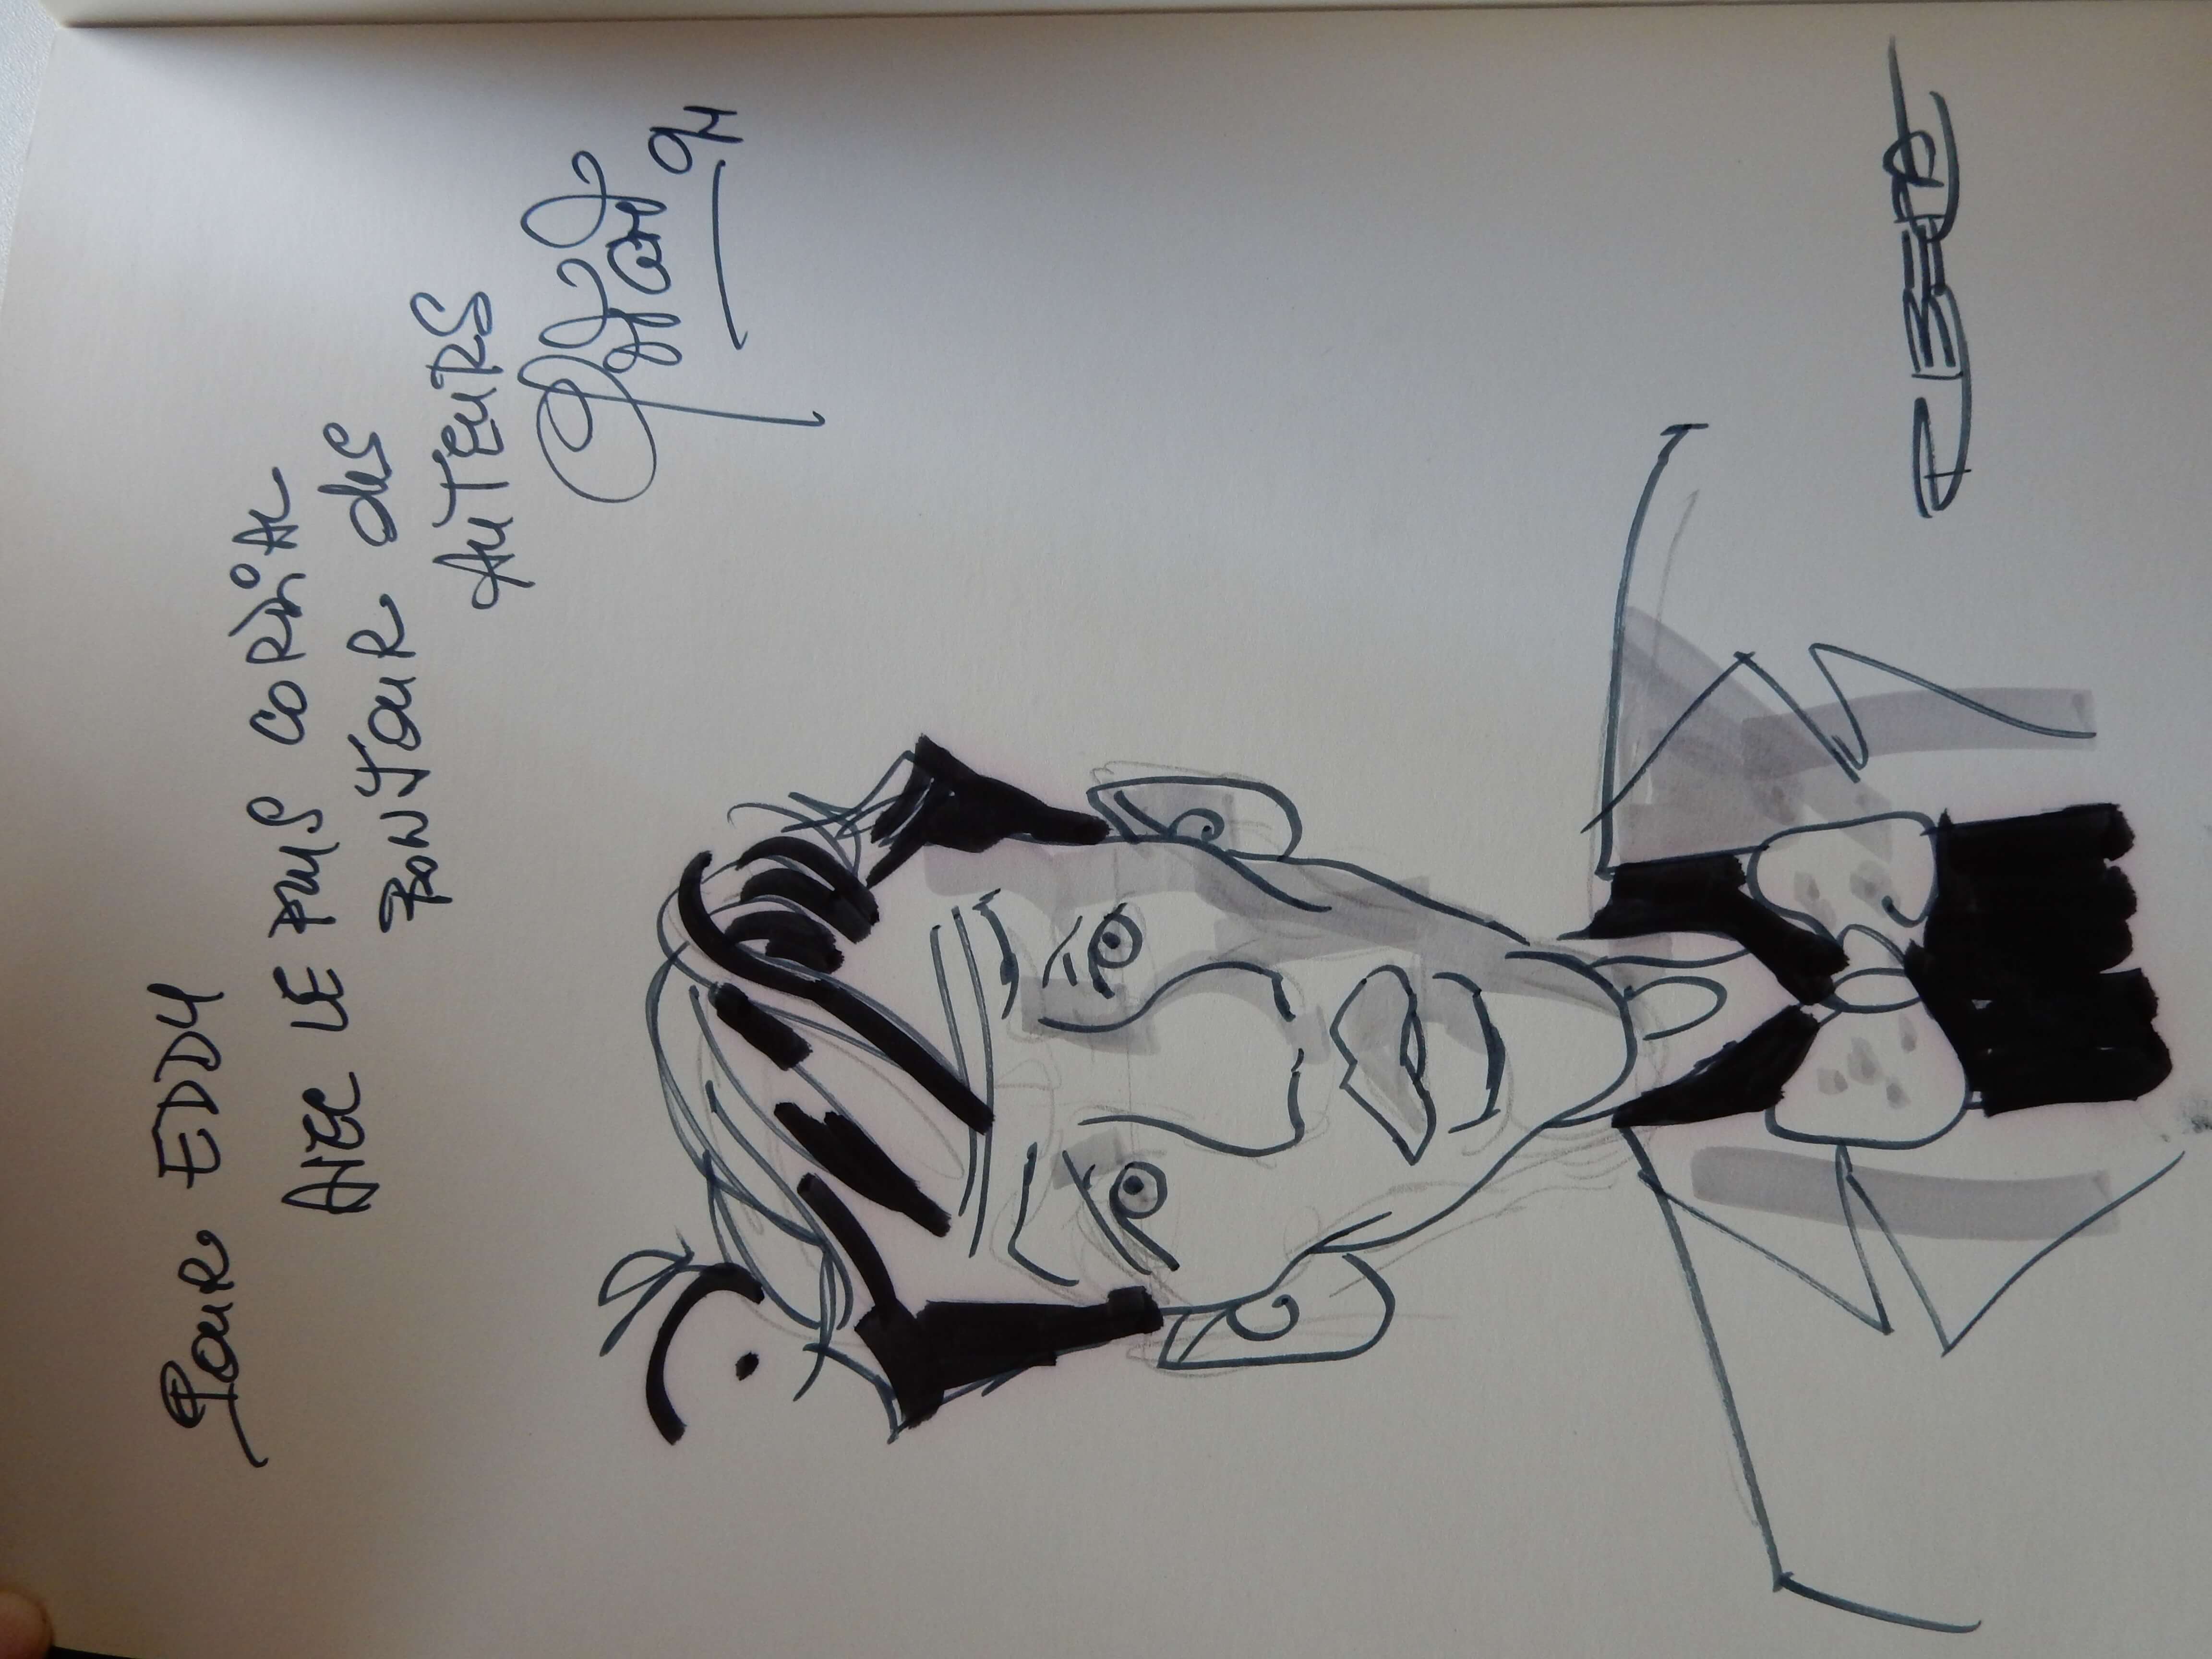 Pour EDDY
AVEC LE PLUS CORDiAL
BONJOUR des
AUTEURS
Godard 94
RIBERA